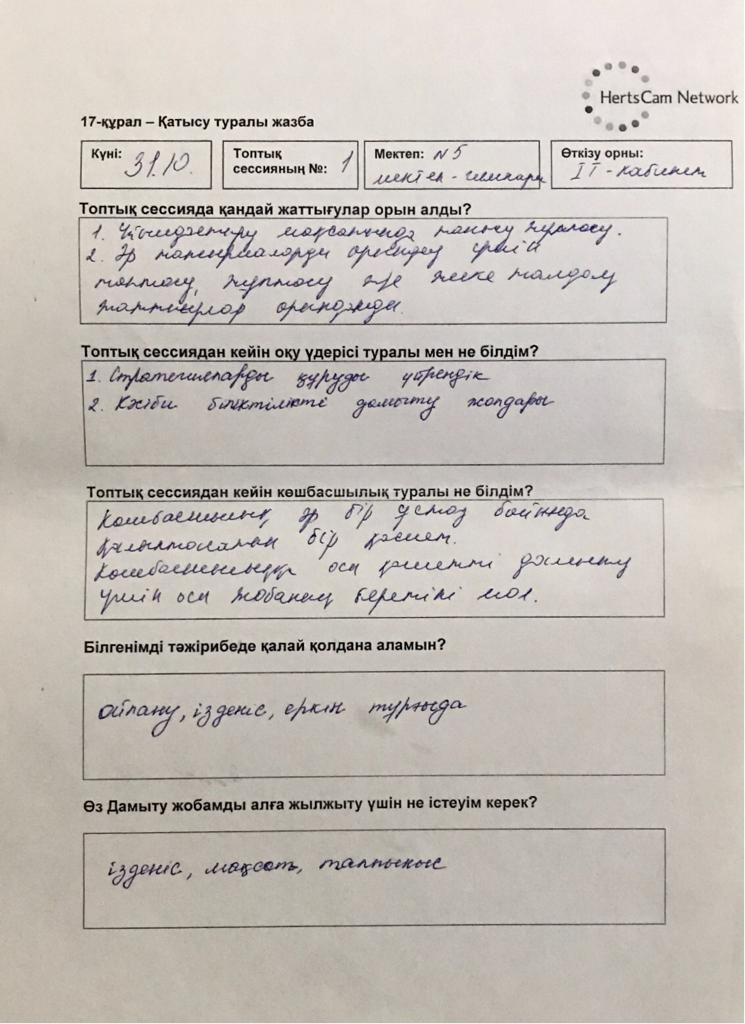 HertsCam Network
17-құрал – Қатысу туралы жазба
Күні: 31.10.
Топтық сессияның №: 1
Мектеп: N5 мектеп-гимназия
Өткізу орны: IT-кабинет
Топтық сессияда қандай жаттығулар орын алды?
1. Ұйымдастыру мақсатында танысу
2. Әр тапсырмаларды орындау үшін
топтасу, жұптасу және жеке талдау
жаттығулар орындалды.
Топтық сессиядан кейін оқу үдерісі туралы мен не білдім?
1. Стратегияларды құруды үйрендік
2. Кәсіби біліктілікті дамыту жолдары
Топтық сессиядан кейін көшбасшылық туралы не білдім?
Көшбасшылық әр бір ұстаз бойында
қалыптасатын бір қасиет.
Көшбасшылыққа осы қасиетті дамыту
үшін осы жобаның беретіні мол.
Білгенімді тәжірибеде қалай қолдана аламын?
ойлану, ізденіс, еркін тұрғыда
Өз Дамыту жобамды алға жылжыту үшін не істеуім керек?
ізденіс, мақсат, талпыныс